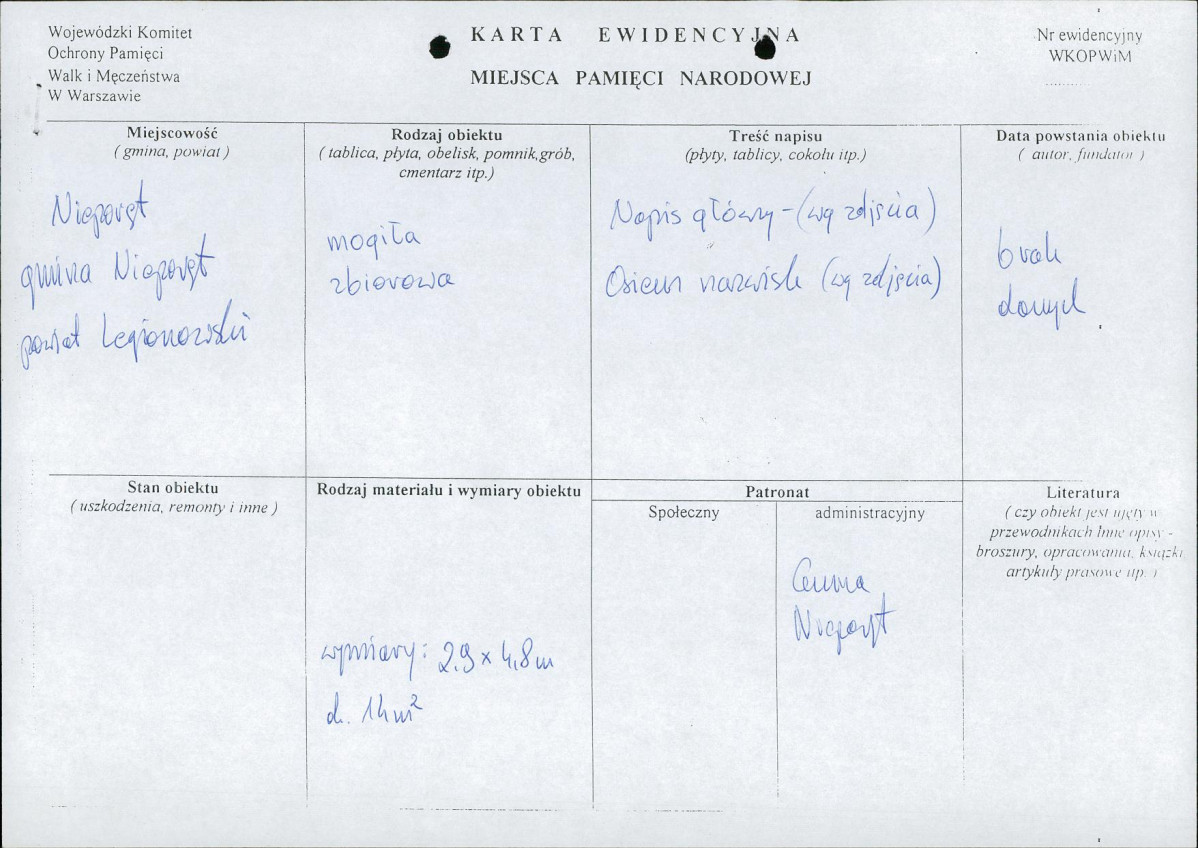 Wojewódzki Komitet
Ochrony Pamięci
Walk i Męczeństwa
W Warszawie
KARTA EWIDENCYJNA
MIEJSCA PAMIĘCI NARODOWEJ
Nr ewidencyjny
WKOPWiM
Miejscowość
( gmina, powiat )
Nieporęt
gmina Nieporęt
powiat Legionowski
Rodzaj obiektu
( tablica, płyta, obelisk, pomnik,grób,
cmentarz itp.)
mogiła
zbiorowa
Treść napisu
(płyty, tablicy, cokołu itp.)
Napis główny - (wg zdjęcia)
Osiem nazwisk (wg zdjęcia)
Data powstania obiektu
( autor, fundator )
brak
danych
Stan obiektu
( uszkodzenia, remonty i inne )
Rodzaj materiału i wymiary obiektu
wymiary: 2,9 x 4,8 m
14 m²
Patronat
Społeczny
administracyjny
Gmina
Nieporęt
Literatura
( czy obiekt jest ujęty w
przewodnikach Inne opisy -
broszury, opracowania, książki,
artykuły prasowe itp. )